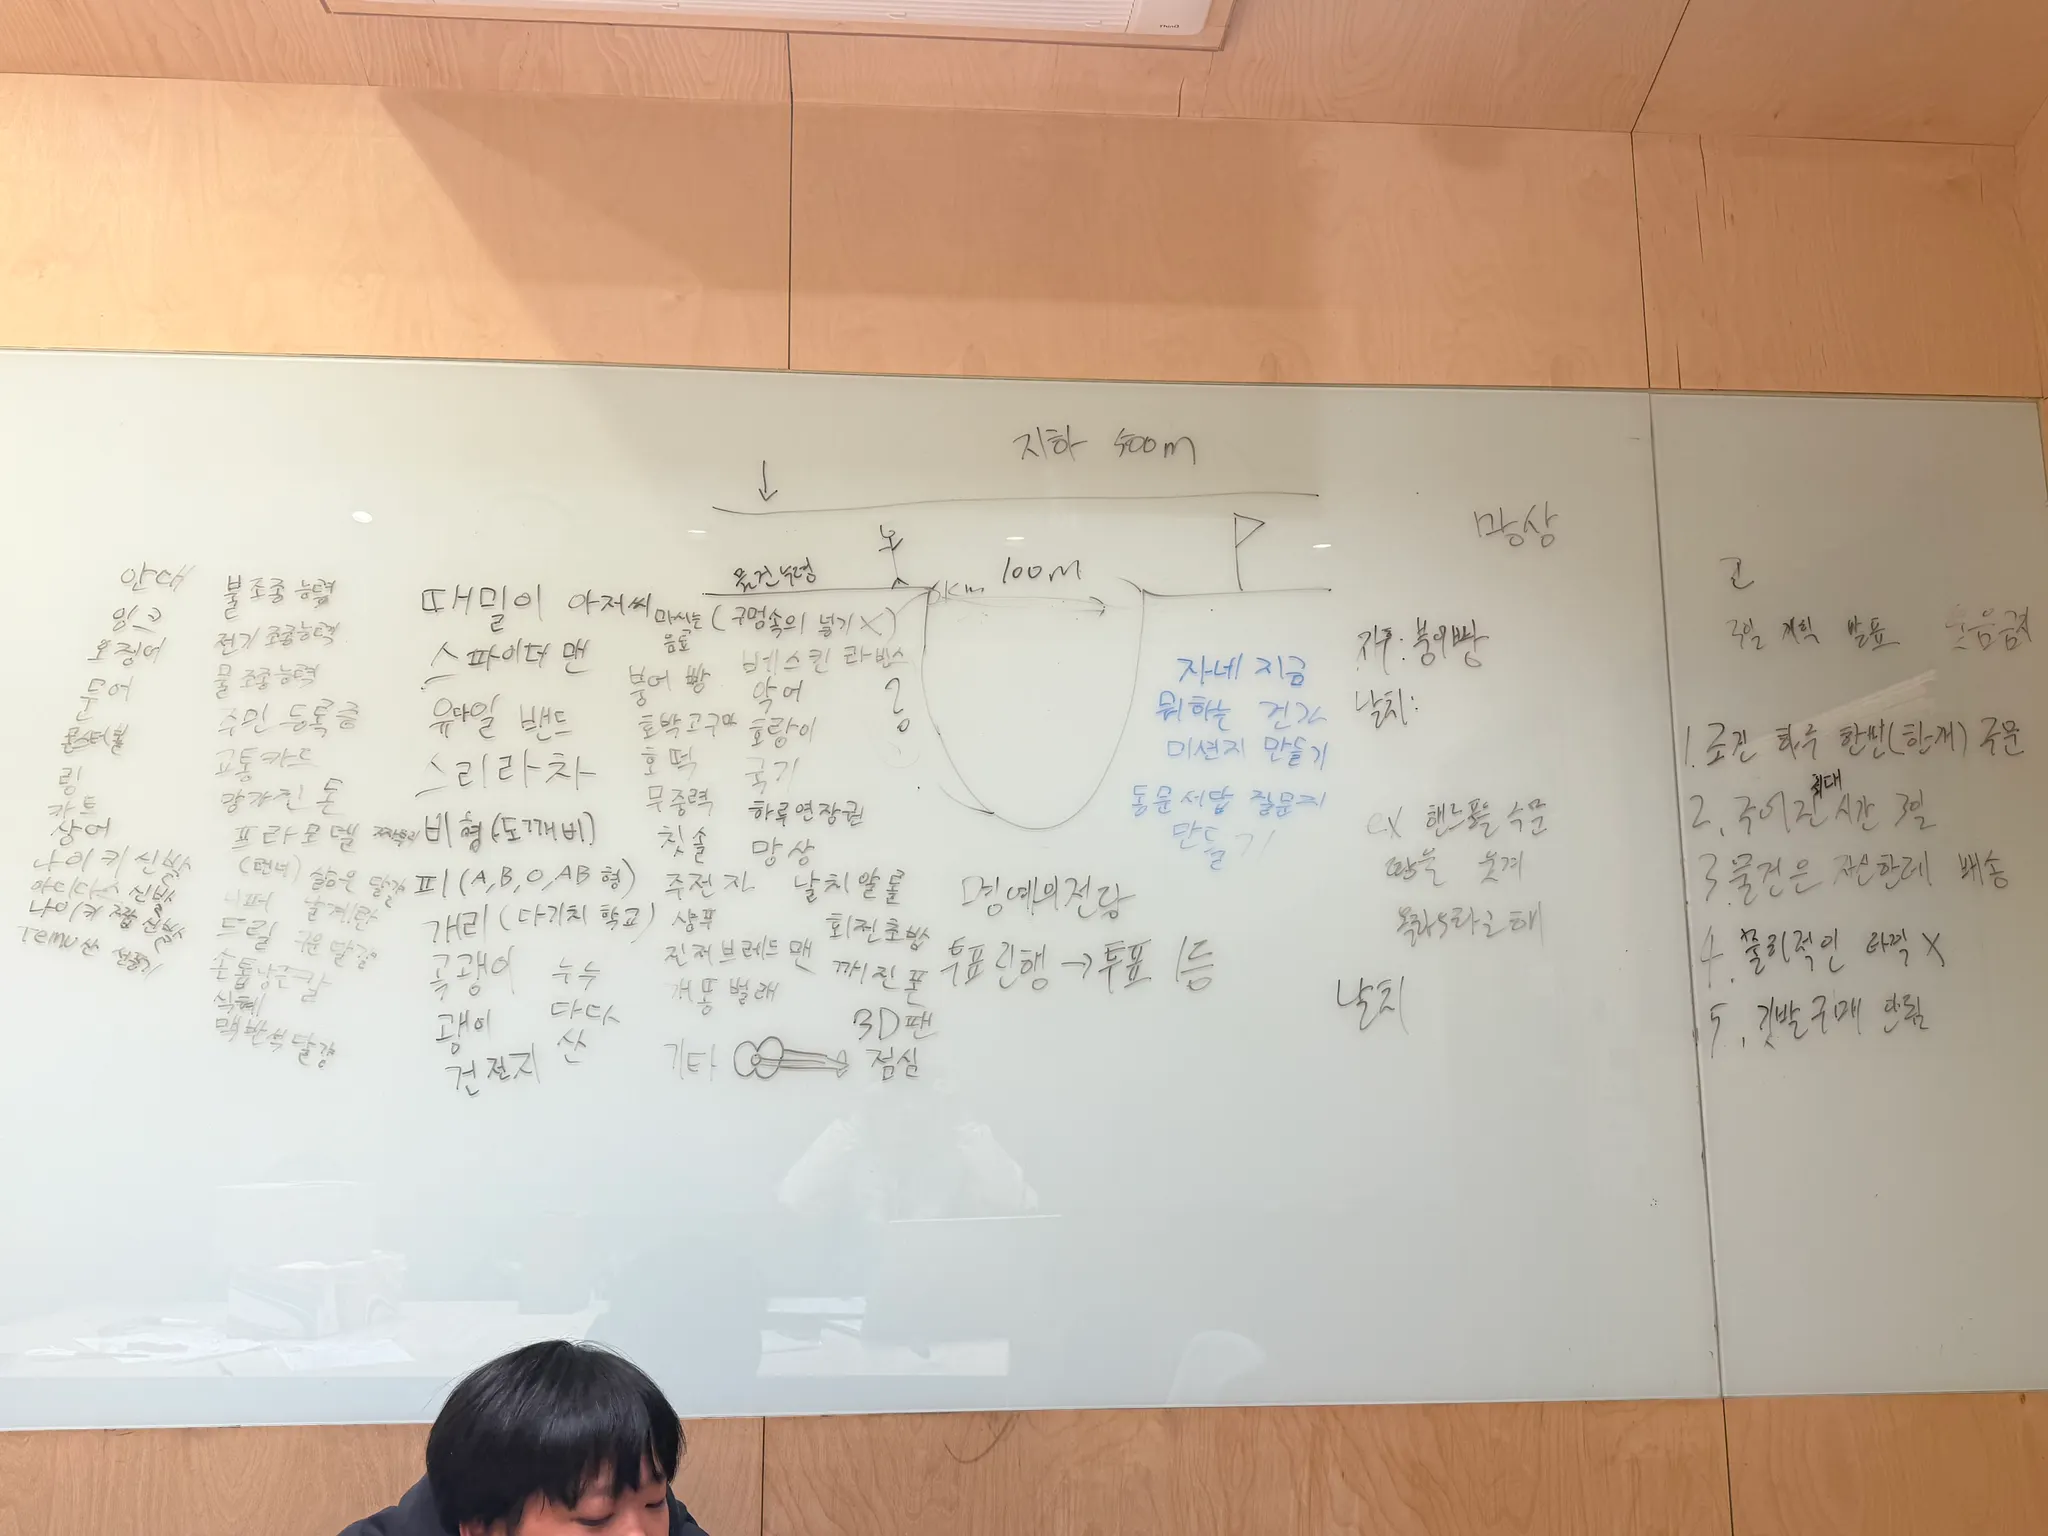 지하 500m
100m
망상
안대
잉크
오징어
문어
몬스터볼
링
카트
상어
나이키 신발
아디다스 신발
나이키 짭 신발
Temu산
불 조종 능력
전기 조종능력
물 조종능력
주민 등록증
교통카드
망가진 폰
프라모델
니퍼
드릴
식혜
맥반석 달걀
삶은 달걀
날계란
구운 달걀
때밀이 아저씨
스파이더 맨
유다일 밴드
스리라차
비형(도깨비)
피(A,B,O,AB형)
개리(다기치 학교)
곡괭이
괭이
건전지
누누
다다
산
마시는 음료
(구멍속의 넣기 X)
붕어빵
호박고구마
호떡
무중력
칫솔
주전자
샴푸
진저브레드맨
개똥벌레
기타
베스킨라빈스
악어
호랑이
국기
하루연장권
망상
날치알 롤
회전초밥
깨진폰
3D팬
점심
?
명예의전당
투표진행 → 투표 1등
자네 지금
뭐하는 건가
미션지 만들기
동문서답 질문지
만들기
지우: 붕어빵
날치:
날치
3일 계획 발표
1. 조건 하루 한번(한개) 주문
2. 주어진 최대 시간 3일
3. 물건은 자신한테 배송
4. 물리적인 타격 X
5.